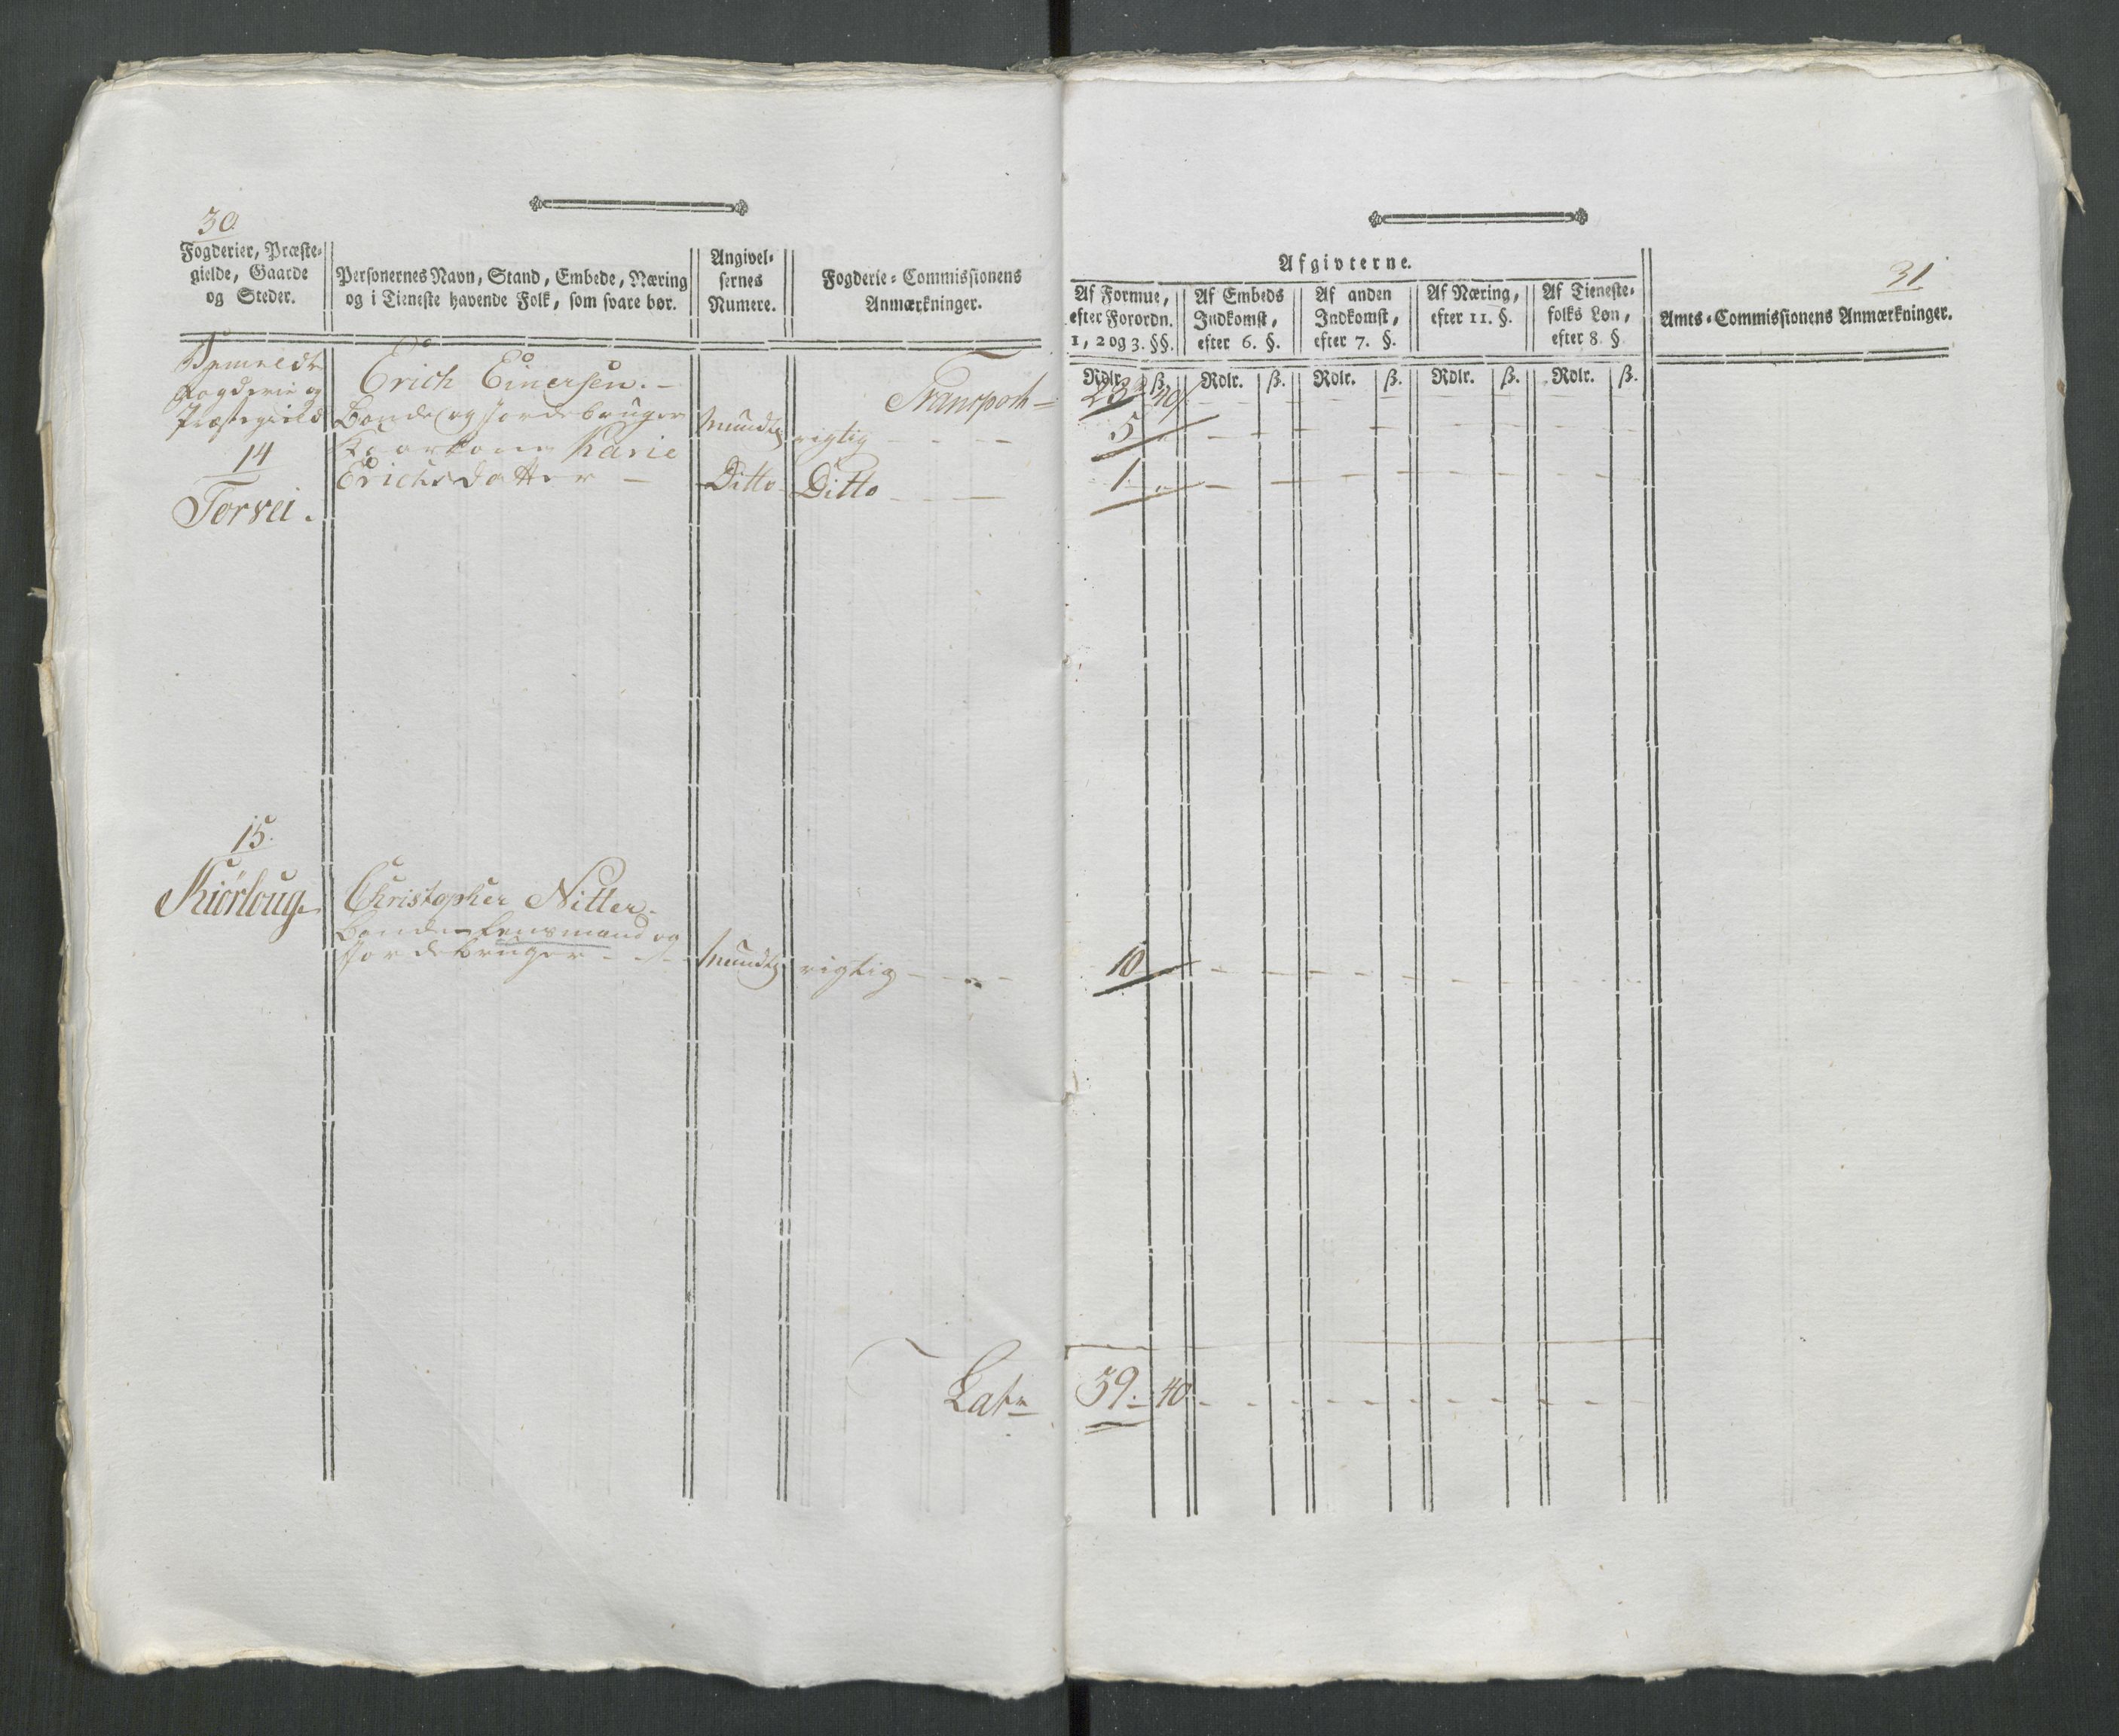 30
Fogderier, Præste-
gielde, Gaarde
og Steder.
Personernes Navn, Stand, Embede, Næring
og i Tieneste havende Folk, som svare bør.
Angivel-
sernes
Numere.
Fogderie-Commissionens
Anmærkninger.
Fogderie og
Præstegield
14
Torvei.
Erich Einersen.
Bonde og Jordebruger
mundtl
rigtig
Transport
Karie
Erichsdatter
Ditto
Ditto
15.
Kiørloug
Christopher Nitter.
Bonde Lensmand og
Jordebruger
mundtl
rigtig
Lat
31
Afgivterne.
Af Formue,
efter Forordn.
1, 2 og 3. §§.
Af Embeds
Indkomst,
efter 6. §.
Af anden
Indkomst,
efter 7. §.
Af Næring,
efter 11. §.
Af Tieneste-
folks Løn,
efter 8. §.
Amts-Commissionens Anmærkninger.
Rdlr. ß. Rdlr. ß. Rdlr. ß. Rdlr. ß. Rdlr. ß.
23 40
5
1
10
39 40